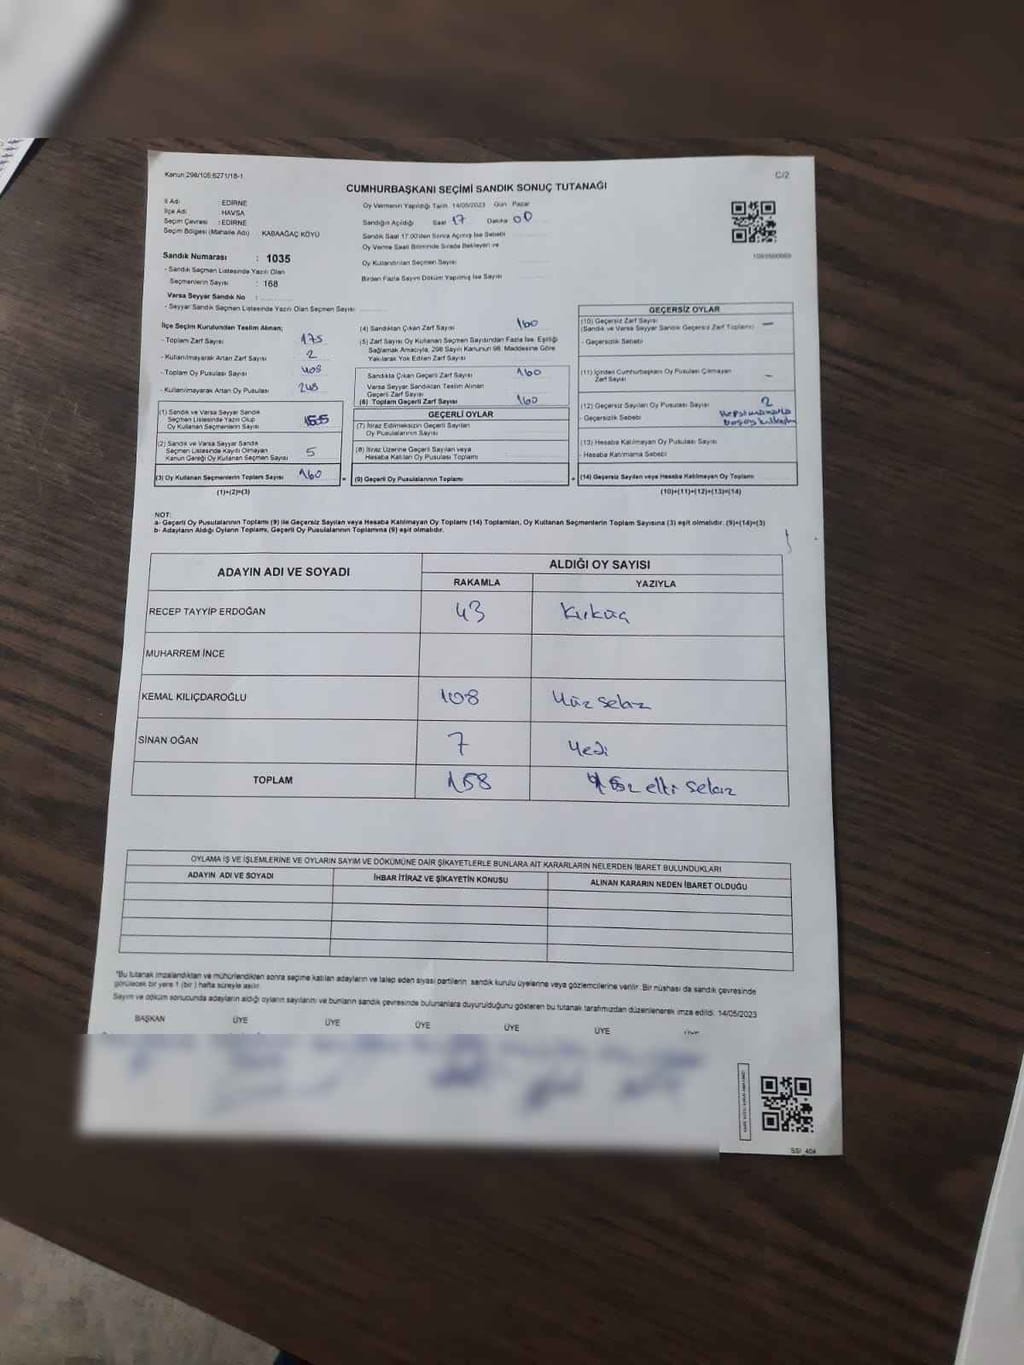 Kanun:298/105:6271/18-1
C/2
CUMHURBAŞKANI SEÇİMİ SANDIK SONUÇ TUTANAĞI
İl Adı : EDİRNE
İlçe Adı : HAVSA
Seçim Çevresi : EDİRNE
Seçim Bölgesi (Mahalle Adı) : KABAAĞAÇ KÖYÜ
Sandık Numarası : 1035
- Sandık Seçmen Listesinde Yazılı Olan
Seçmenlerin Sayısı : 168
Varsa Seyyar Sandık No :
- Seyyar Sandık Seçmen Listesinde Yazılı Olan Seçmen Sayısı
Oy Vermenin Yapıldığı Tarih 14/05/2023 Gün Pazar
Sandığın Açıldığı Saat 17 Dakika 00
Sandık Saat 17.00'den Sonra Açılmış İse Sebebi
Oy Verme Saati Bitiminde Sırada Bekleyen ve
Oy Kullandırılan Seçmen Sayısı
Birden Fazla Sayım Döküm Yapılmış İse Sayısı
İlçe Seçim Kurulundan Teslim Alınan;
- Toplam Zarf Sayısı 175
- Kullanılmayarak Artan Zarf Sayısı 2
- Toplam Oy Pusulası Sayısı 408
- Kullanılmayarak Artan Oy Pusulası 248
(1) Sandık ve Varsa Seyyar Sandık
Seçmen Listesinde Yazılı Olup
Oy Kullanan Seçmenlerin Sayısı 155
(2) Sandık ve Varsa Seyyar Sandık
Seçmen Listesinde Kayıtlı Olmayan
Kanun Gereği Oy Kullanan Seçmen Sayısı 5
(3) Oy Kullanan Seçmenlerin Toplam Sayısı 160
(1)+(2)=(3)
(4) Sandıktan Çıkan Zarf Sayısı 160
(5) Zarf Sayısı Oy Kullanan Seçmen Sayısından Fazla İse, Eşitliği
Sağlamak Amacıyla, 298 Sayılı Kanunun 98. Maddesine Göre
Yakılarak Yok Edilen Zarf Sayısı
Sandıkta Çıkan Geçerli Zarf Sayısı 160
Varsa Seyyar Sandıktan Teslim Alınan
Geçerli Zarf Sayısı
(6) Toplam Geçerli Zarf Sayısı 160
GEÇERLİ OYLAR
(7) İtiraz Edilmeksizin Geçerli Sayılan
Oy Pusulalarının Sayısı
(8) İtiraz Üzerine Geçerli Sayılan veya
Hesaba Katılan Oy Pusulası Toplamı
(9) Geçerli Oy Pusulalarının Toplamı
GEÇERSİZ OYLAR
(10) Geçersiz Zarf Sayısı
(Sandık ve Varsa Seyyar Sandık Geçersiz Zarf Toplamı) —
- Geçersizlik Sebebi
(11) İçinden Cumhurbaşkanı Oy Pusulası Çıkmayan
Zarf Sayısı —
(12) Geçersiz Sayılan Oy Pusulası Sayısı 2
- Geçersizlik Sebebi
(13) Hesaba Katılmayan Oy Pusulası Sayısı
- Hesaba Katılmama Sebebi
(14) Geçersiz Sayılan veya Hesaba Katılmayan Oy Toplamı
(10)+(11)+(12)+(13)=(14)
NOT:
a- Geçerli Oy Pusulalarının Toplamı (9) ile Geçersiz Sayılan veya Hesaba Katılmayan Oy Toplamı (14) Toplamları, Oy Kullanan Seçmenlerin Toplam Sayısına (3) eşit olmalıdır. (9)+(14)=(3)
b- Adayların Aldığı Oyların Toplamı, Geçerli Oy Pusulalarının Toplamına (9) eşit olmalıdır.
ADAYIN ADI VE SOYADI
ALDIĞI OY SAYISI
RAKAMLA YAZIYLA
RECEP TAYYİP ERDOĞAN 43 Kırküç
MUHARREM İNCE
KEMAL KILIÇDAROĞLU 108 Yüz sekiz
SİNAN OĞAN 7 Yedi
TOPLAM 158 Yüz elli sekiz
OYLAMA İŞ VE İŞLEMLERİNE VE OYLARIN SAYIM VE DÖKÜMÜNE DAİR ŞİKAYETLERLE BUNLARA AİT KARARLARIN NELERDEN İBARET BULUNDUKLARI
ADAYIN ADI VE SOYADI İHBAR İTİRAZ VE ŞİKAYETİN KONUSU ALINAN KARARIN NEDEN İBARET OLDUĞU
*Bu tutanak imzalandıktan ve mühürlendikten sonra seçime katılan adayların ve talep eden siyasi partilerin sandık kurulu üyelerine veya gözlemcilerine verilir. Bir nüshası da sandık çevresinde
görülecek bir yere 1 (bir) hafta süreyle asılır.
Sayım ve döküm sonucunda adayların aldığı oyların sayılarını ve bunların sandık çevresinde bulunanlara duyurulduğunu gösteren bu tutanak tarafımızdan düzenlenerek imza edildi. 14/05/2023
BAŞKAN ÜYE ÜYE ÜYE ÜYE ÜYE ÜYE